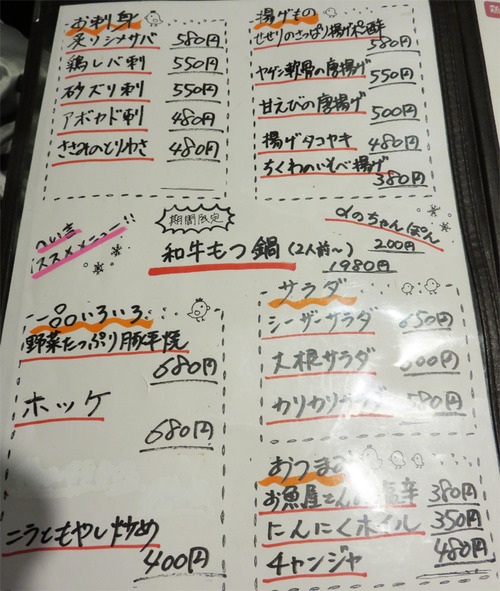 お刺身
炙りシメサバ 580円
鶏レバ刺 550円
砂ズリ刺 550円
アボカド刺 480円
ささみのとりわさ 480円
揚げもの
せせりのさっぱり揚げポン酢 580円
ヤゲン軟骨の唐揚げ 550円
甘えびの唐揚げ 500円
揚げタコヤキ 480円
ちくわのいそべ揚げ 380円
ススメメニュー!!
期間限定
和牛もつ鍋(2人前～) 1980円
〆のちゃんぽん 200円
一品いろいろ
野菜たっぷり豚平焼 680円
ホッケ 680円
ニラともやし炒め 400円
サラダ
シーザーサラダ 650円
大根サラダ 600円
カリカリ 580円
おつまみ
お魚屋さんの塩辛 380円
にんにくホイル 350円
チャンジャ 480円